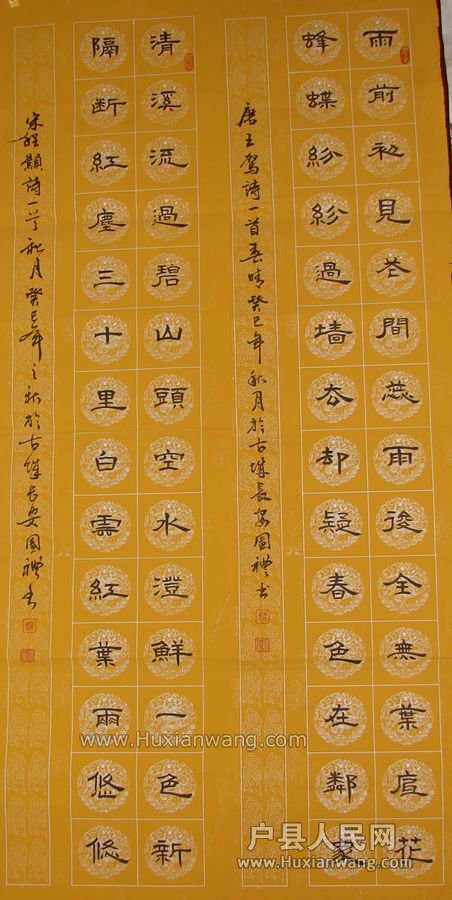 雨前初見花間蕊雨後全無葉底花
蜂蝶紛紛過墻去却疑春色在鄰家
唐王駕詩一首春晴癸巳年秋月於古城長安國禮書
清溪流過碧山頭空水澄鮮一色新
隔断紅塵三十里白雲紅葉兩悠悠
宋程顥詩一首秋月癸巳年之秋於古城長安國禮書
www.Huxianwang.com
户县人民网
www.Huxianwang.com